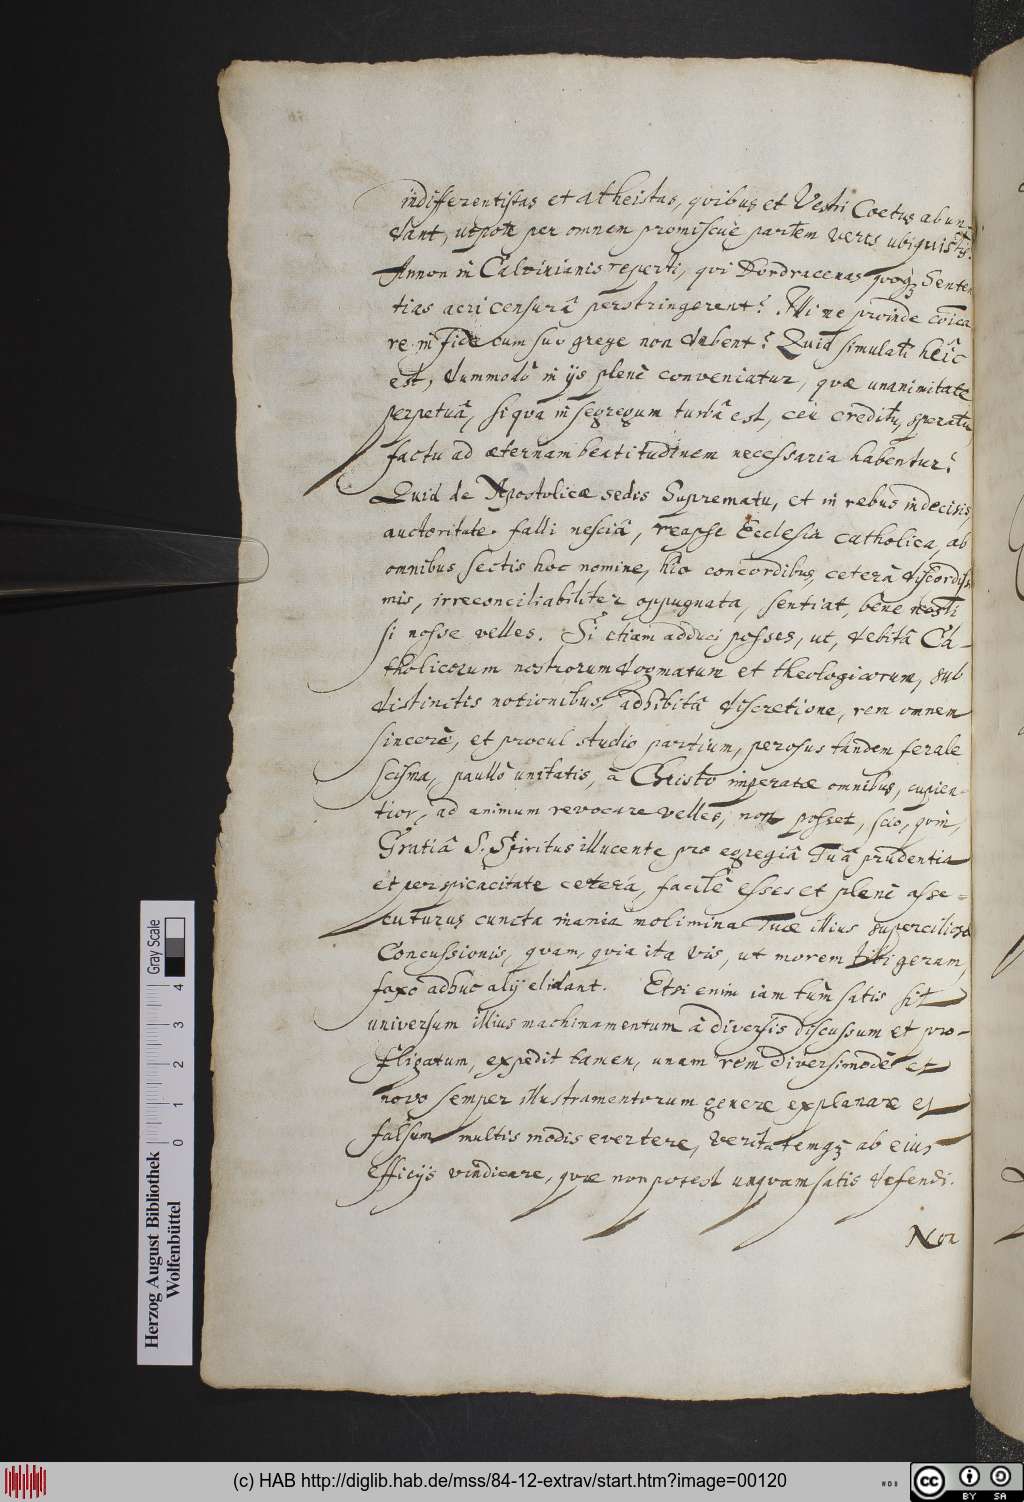 indifferentistas et atheistas, quibus et Vestri Coetus abun-
dant, utpote per omnem promiscuè partem verts ubiquistis?
Annon in Calvinianis reperti, qui Dordracenas quoqз Senten
tias acri censurâ perstringerent? Illi ne proinde coīca
re in fide cum suo grege non debent? Quid simulati heîc
est, dummodò in ijs plenè conveniatur, quæ unanimitate
perpetuâ, si qua in segregum turbâ est, ceu creditu, speratu,
factu ad æternam beatitudinem necessaria habentur?
Quid de Apostolicæ sedis Suprematu, et in rebus indecisis,
auctoritate falli nesciâ, reapse Ecclesia catholica, ab
omnibus sectis hoc nomine, hîc concordibus, ceterà discordissi
mis, irreconciliabiliter oppugnata, sentiat, bene nosti
si nosse velles. Si etiam adduci posses, ut, debitâ Ca-
tholicorum nostrorum dogmatum et theologicorum, sub
distinctis notionibus, adhibitâ discretione, rem omnem
sincerè, et procul studio partium, perosus tandem ferale
scisma, paullò unitatis, à Christo imperatæ omnibus, cupien-
tior, ad animum revocare velles, non posset, scio, quin,
Gratiâ S. Spiritus illucente pro egregiâ Tuâ prudentia
et perspicacitate ceterà, facilè esses et plenè asse-
cuturus cuncta inania molimina Tuæ illius superciliosæ
Concussionis, quam, quia ita vis, ut morem tibi geram,
faxo adhuc alij elidant. Etsi enim iam tum satis sit
universum illius machinamentum à diversis discussum et pro-
fligatum, expedit tamen, unam rem diversimodè et
novo semper illustramentorum genere explanare et
falsum multis modis evertere, veritatemqз ab eius
efficijs vindicare, quæ non potest unquam satis defendi.
Non
Herzog August Bibliothek
Wolfenbüttel
Gray Scale
0 1 2 3 4
(c) HAB http://diglib.hab.de/mss/84-12-extrav/start.htm?image=00120
cc BY SA